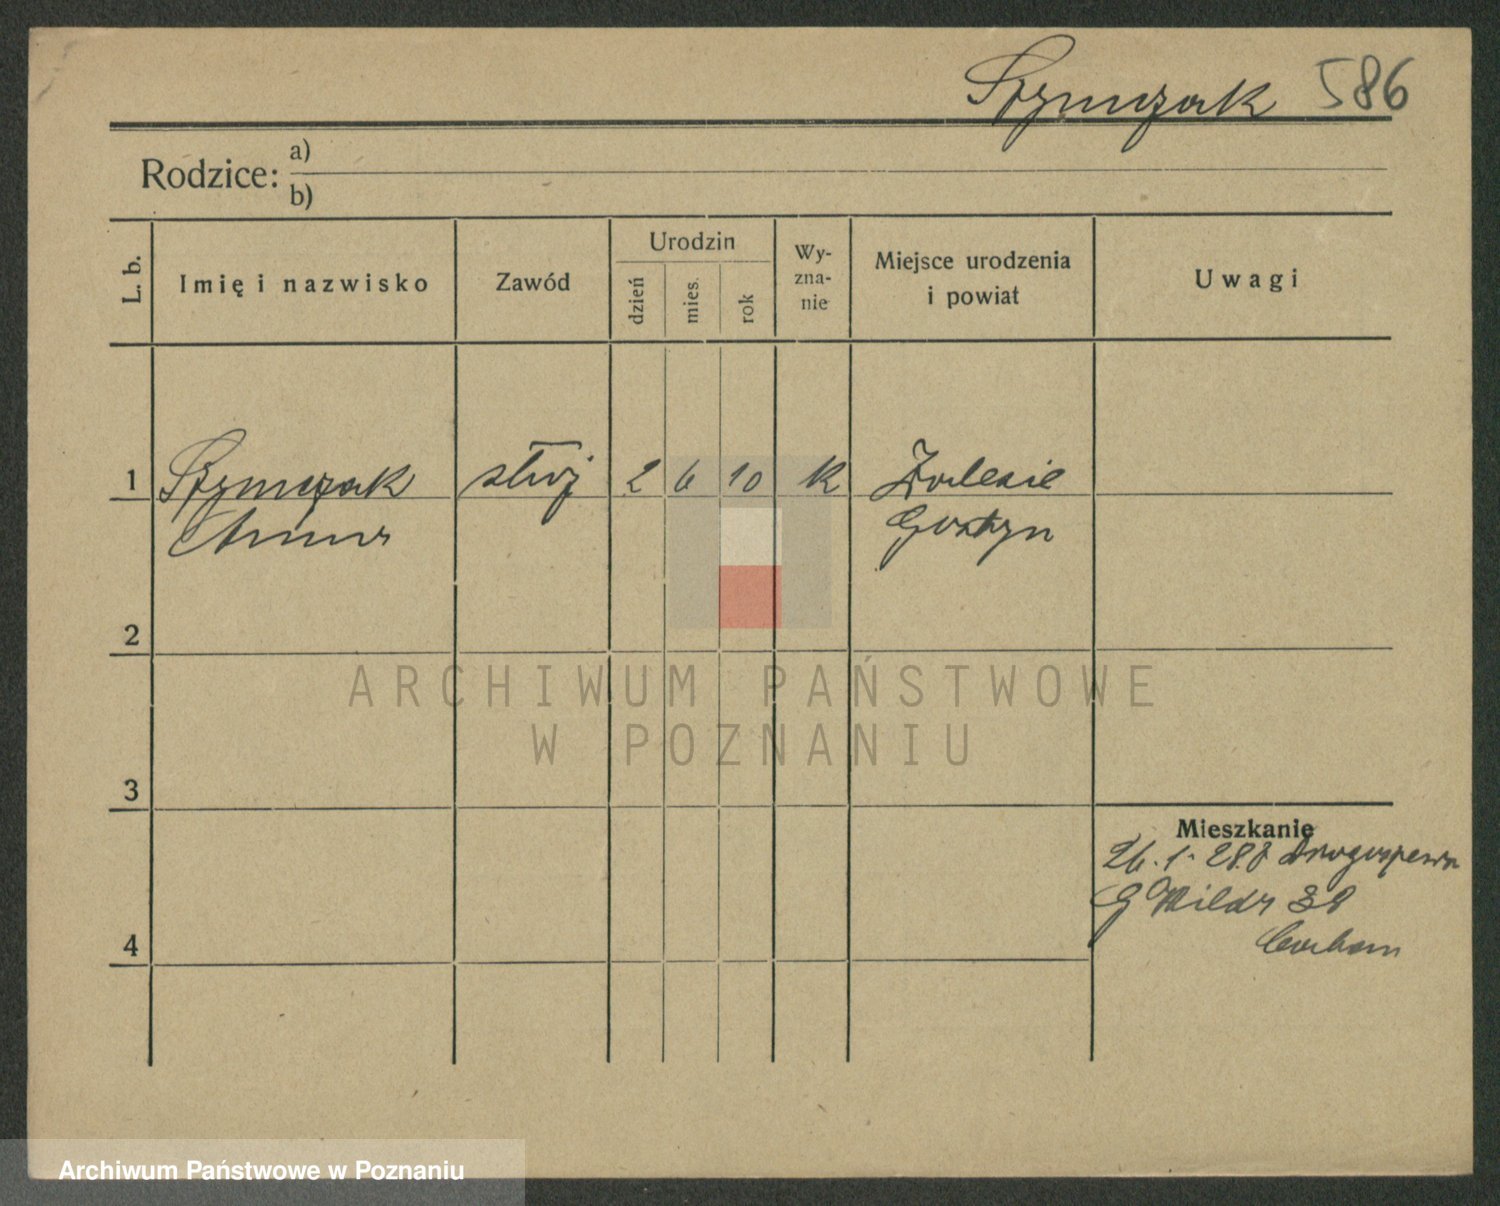 Szymczak 586
Rodzice: a)
b)
L. b.
Imię i nazwisko
Zawód
Urodzin
dzień
mies.
rok
Wy-
zna-
nie
Miejsce urodzenia
i powiat
Uwagi
1 Szymczak służ 2 6 10 k Zalesie
Anna Gostyn
2
3
4
Mieszkanie
26.1.28.
G Wilda 38
ARCHIWUM PAŃSTWOWE
W POZNANIU
Archiwum Państwowe w Poznaniu